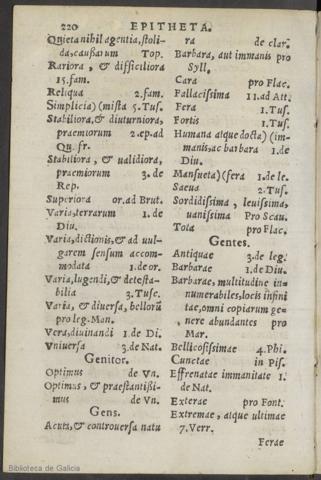 220 EPITHETA.
Quieta nihil agentia, stoli-
da, caussarum Top.
Rariora, & difficiliora
15. fam.
Reliqua 2. fam.
Simplicia) (mista 5. Tus.
Stabiliora, & diuturniora,
praemiorum 2. ep. ad
Qu. fr.
Stabiliora, & ualidiora,
praemiorum 3. de
Rep.
Superiora or. ad Brut.
Varia, terrarum 1. de
Diu.
Varia, dictionis, & ad uul-
garem sensum accom-
modata 1. de or.
Varia, lugendi, & detesta-
bilia 3. Tusc.
Varia, & diuersa, bellorū
pro leg. Man.
Vera, diuinandi 1. de Di.
Vniuersa 3. de Nat.
Genitor.
Optimus de Vn.
Optimus, & praestantißi-
mus de Vn.
Gens.
Acuta, & controuersa natu
ra de clar.
Barbara, aut immanis pro
Syll.
Cara pro Flac.
Fallacissima 11. ad Att.
Fera 1. Tus.
Fortis 1. Tus.
Humana atque docta) (im-
manis, ac barbara 1. de
Diu.
Mansueta) (fera 1. de le.
Saeua 2. Tus.
Sordidissima, leuissima,
uanissima Pro Scau.
Tota pro Flac.
Gentes.
Antiquae 3. de leg.
Barbarae 1. de Diu.
Barbarae, multitudine in-
numerabiles, locis infini
tae, omni copiarum ge-
nere abundantes pro
Mar.
Bellicosissimae 4. Phi.
Cunctae in Pis.
Effrenatae immanitate 1.
de Nat.
Exterae pro Font.
Extremae, atque ultimae
7. Verr.
Ferae
Biblioteca de Galicia